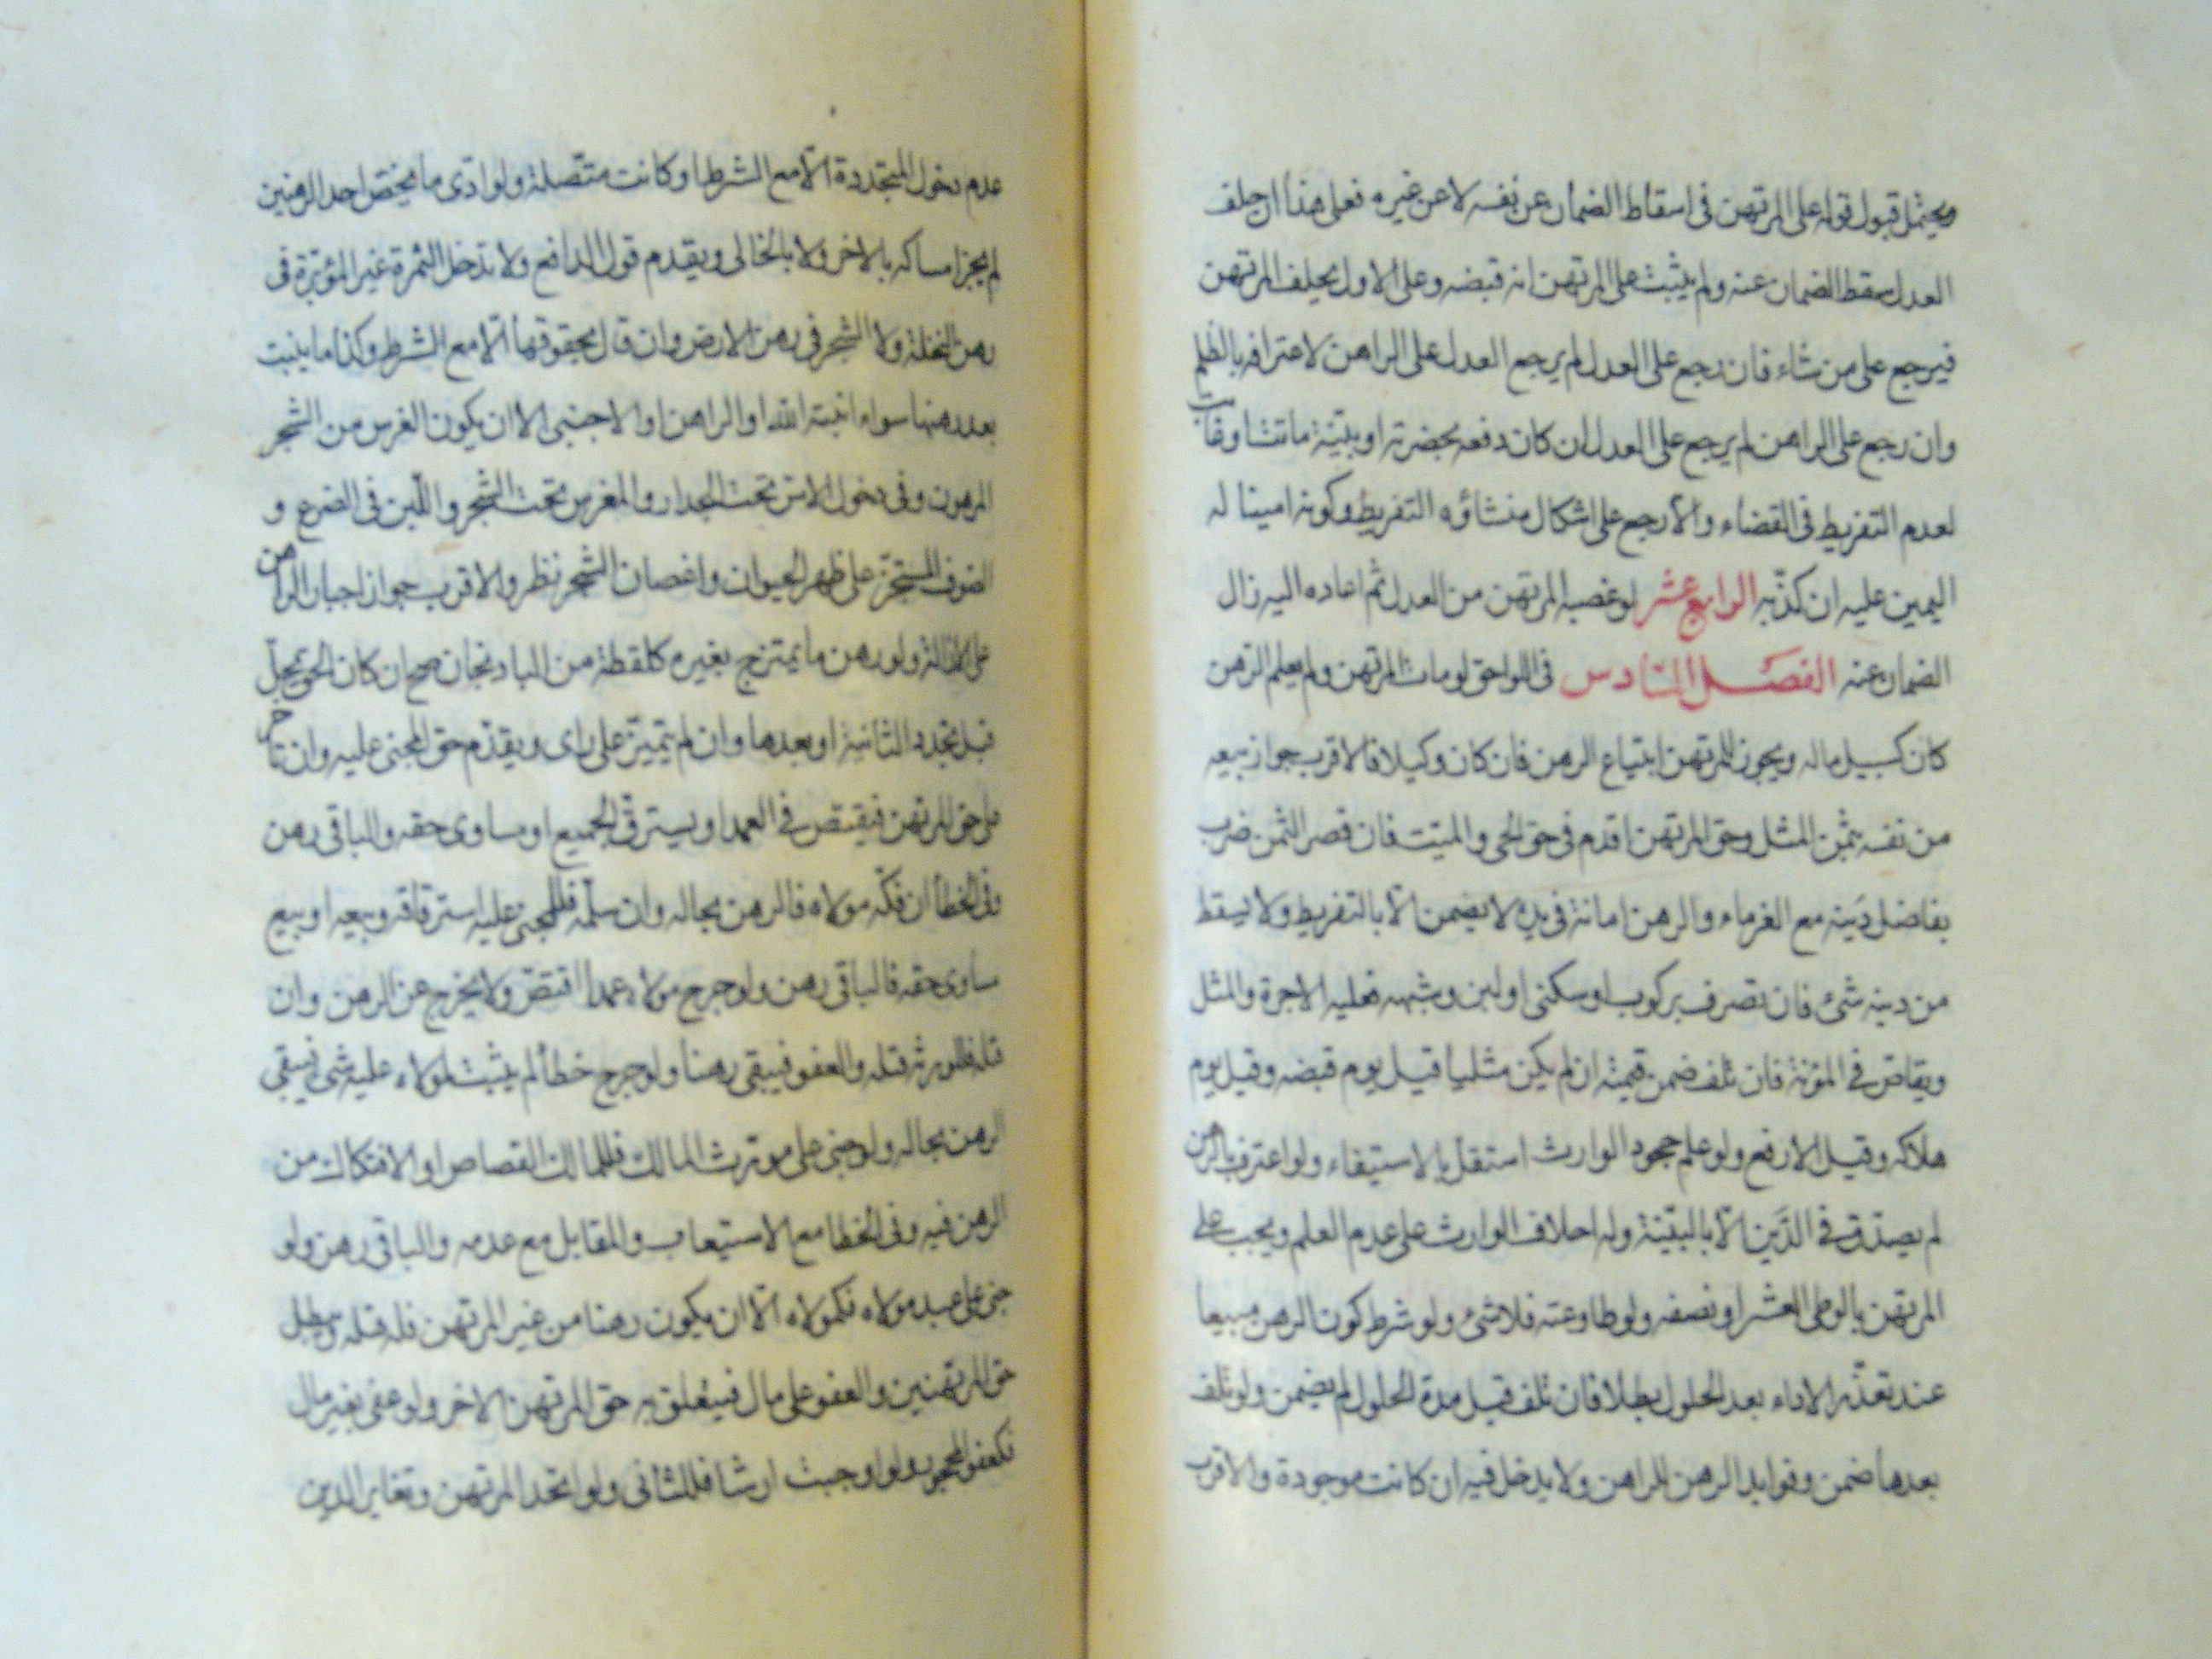 ويحتمل قبول قوله على المرتهن فى اسقاط الضمان عن نفسه لا عن غيره فعلى هذا ان حلف
العدل سقط الضمان عنه ولم يثبت على المرتهن انه قبضه وعلى الاول يحلف المرتهن
فيرجع على من شاء فان رجع على العدل لم يرجع العدل على الراهن لاعترافه بالظلم
وان رجع على الراهن لم يرجع على العدل ان كان دفعه بحضرته او ببينة ماتت او غابت
لعدم التفريط فى القضاء والا رجع على اشكال منشاؤه التفريط وكونه امينا له
اليمين عليه ان كذبه الرابع عشر لو غصبه المرتهن من العدل ثم اعاده اليه زال
الضمان عنه الفصل السادس فى اللواحق لو مات المرتهن ولم يعلم الرهن
كان كسبيل ماله ويجوز للمرتهن ابتياع الرهن فان كان وكيلا فالاقرب جواز بيعه
من نفسه بثمن المثل وحق المرتهن اقدم فى حق الحى والميت فان قصر الثمن ضرب
بفاضل دينه مع الغرماء والرهن امانة فى يده لا يضمن الا بالتفريط ولا يسقط
من دينه شئ فان تصرف بركوب او سكنى او لبن وشبهه فعليه الاجرة والمثل
ويقاص فى المؤنة فان تلف ضمن قيمته ان لم يكن مثليا قيل يوم قبضه وقيل يوم
هلاكه وقيل الارفع ولو علم جحود الوارث استقل بالاستيفاء ولو اعترف بالرهن
لم يصدق فى الدين الا بالبينة وله احلاف الوارث على عدم العلم ويجب على
المرتهن بالوطى العشر او نصفه ولو طاوعته فلا شئ ولو شرط كون الرهن مبيعا
عند تعذر الاداء بعد الحلول بطلا فان تلف قبل مدة الحلول لم يضمن ولو تلف
بعدها ضمن وفوايد الرهن للراهن ولا يدخل فيه ان كانت موجودة والاقرب
عدم دخول المتجددة الا مع الشرط او كانت متصلة ولو ادى ما يخص احد الرهنين
لم يجز امساكه بالاخر ولا بالخالى ويقدم قول الدافع ولا تدخل الثمرة غير المؤبرة فى
رهن النخلة ولا الشجر فى رهن الارض وان قال بحقوقها الا مع الشرط وكذا ما ينبت
بعد رهنها سواء انبته الله او الراهن او الاجنبى الا ان يكون الغرس من الشجر
المرهون وفى دخول الاس تحت الجدار والمغرس تحت الشجر واللبن فى الضرع و
الصوف المستجز على ظهر الحيوان واغصان الشجر نظر والاقرب جواز اجبار الراهن
على الازالة ولو رهن ما يمتزج بغيره كلقطة من الباذنجان صح ان كان الحق يحل
قبل تجدد الثانية او بعدها وان لم يتميز على راى ويقدم حق المجنى عليه وان تاخر
على حق المرتهن فيقتص فى العمد او يسترق الجميع او مساوى حقه والباقى رهن
وفى الخطأ ان فكه مولاه فالرهن بحاله وان سلمه فللمجنى عليه استرقاقه وبيعه او بيع
مساوى حقه فالباقى رهن ولو جرح مولاه عمدا اقتص ولا يخرج عن الرهن وان
قتله فللورثة قتله والعفو فيبقى رهنا ولو جرح خطأ لم يثبت لمولاه عليه شئ فيبقى
الرهن بحاله ولو جنى على مورث المالك فللمالك القصاص او الافتكاك من
الرهن فيه وفى الخطا مع الاستيعاب والمقابل مع عدمه والباقى رهن ولو
جنى على عبد مولاه فكمولاه الا ان يكون رهنا من غير المرتهن فله قتله ويبطل
حق المرتهنين والعفو على مال فيتعلق به حق المرتهن الاخر ولو عفى بغير مال
فكعفو المحجور ولو اوجبت ارشا فللثانى ولو اتحد المرتهن وتغاير الدين